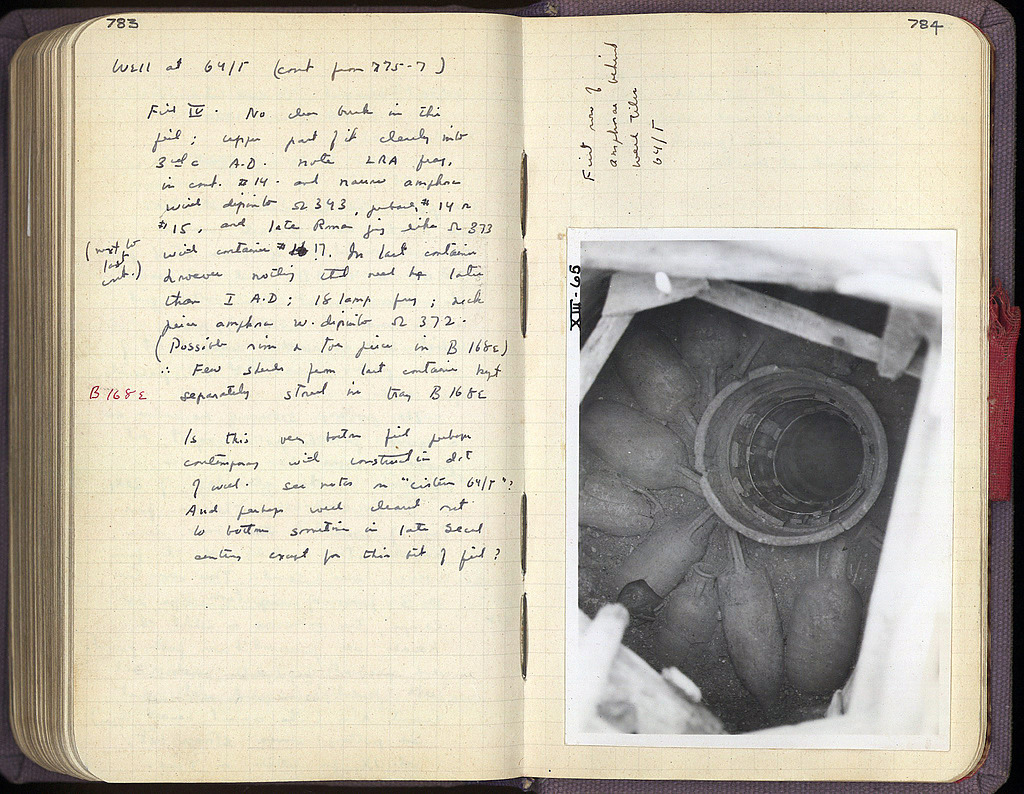 783
Well at 64/Γ (cont from 775-7)
Fill IV. No clear break in this
fill; upper part of it clearly into
3rd c A.D. note LRA frag.
in cont. #14. and narrow amphora
with dipinto Ω 343, perhaps #14 or
#15, and late Roman jug like Ω 373
(next to
last
cont.)
with container #17. In last container
however nothing that need be later
than I A.D; 18 lamp frag; neck
piece amphora w. dipinto Ω 372.
(Possible rim & toe piece in B 168ε)
∴ Few sherds from last container kept
B 168ε
separately stored in tray B 168ε
Is this very bottom fill perhaps
contemporary with construction date
of well. see notes on "cistern 64/Γ"?
And perhaps well cleaned out
to bottom sometime in late second
century except for this bit of fill?
784
First row of
amphoras behind
well tiles
64/Γ
XIII-65